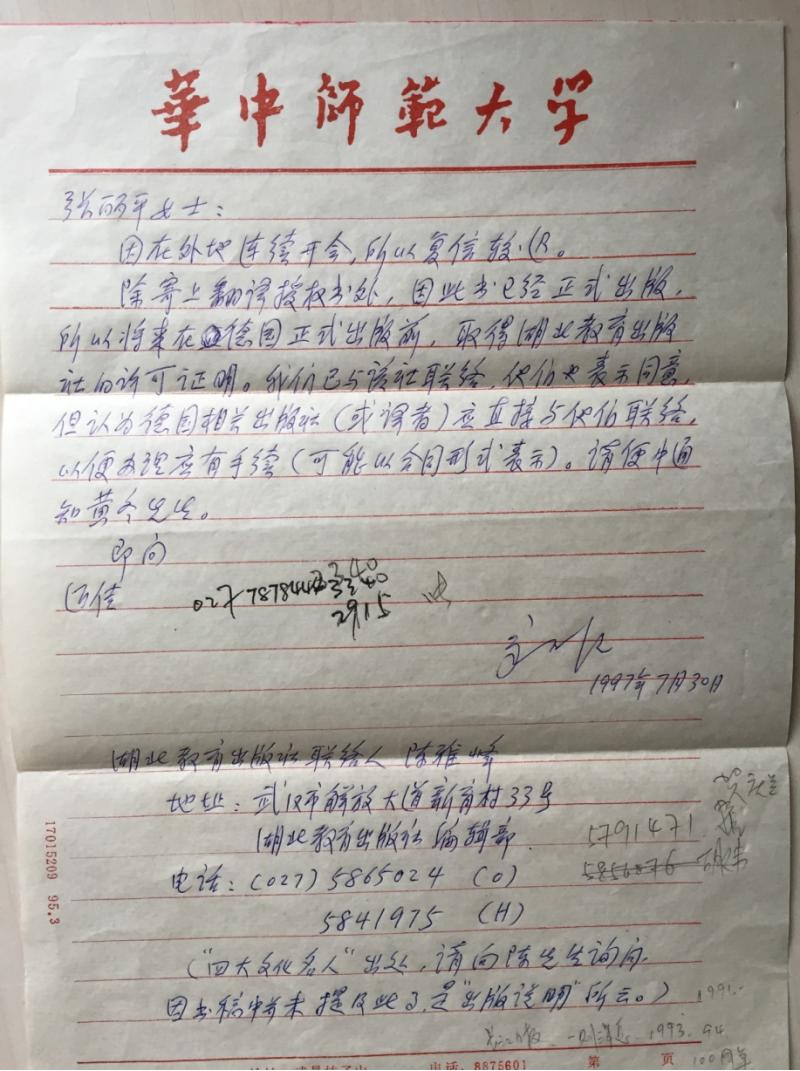 華中師範大学
张丽平女士：
因在外地连续开会，所以复信较迟。
除寄上翻译授权书外，因此书已经正式出版，
所以将来在德国正式出版前，取得湖北教育出版
社的许可证明。我们已与该社联络，他们也表示同意，
但认为德国相关出版社（或译者）应直接与他们联络，
以便办理应有手续（可能以合同形式表示）。请便中通
知黄冬先生。
即问
近佳
2915
1997年7月30日
湖北教育出版社联络人 陈雅峰
地址：武汉市解放大道新育村33号
湖北教育出版社编辑部
5791471
5856876
电话：（027）5865024 （O）
5841975 （H）
（“四大文化名人”出处，请向陈先生询问，
因书稿中并未提及此了，是“出版说明”所云。）
1991.
1993. 94
17015209 95.3
电话：8875601 第 页
100周年